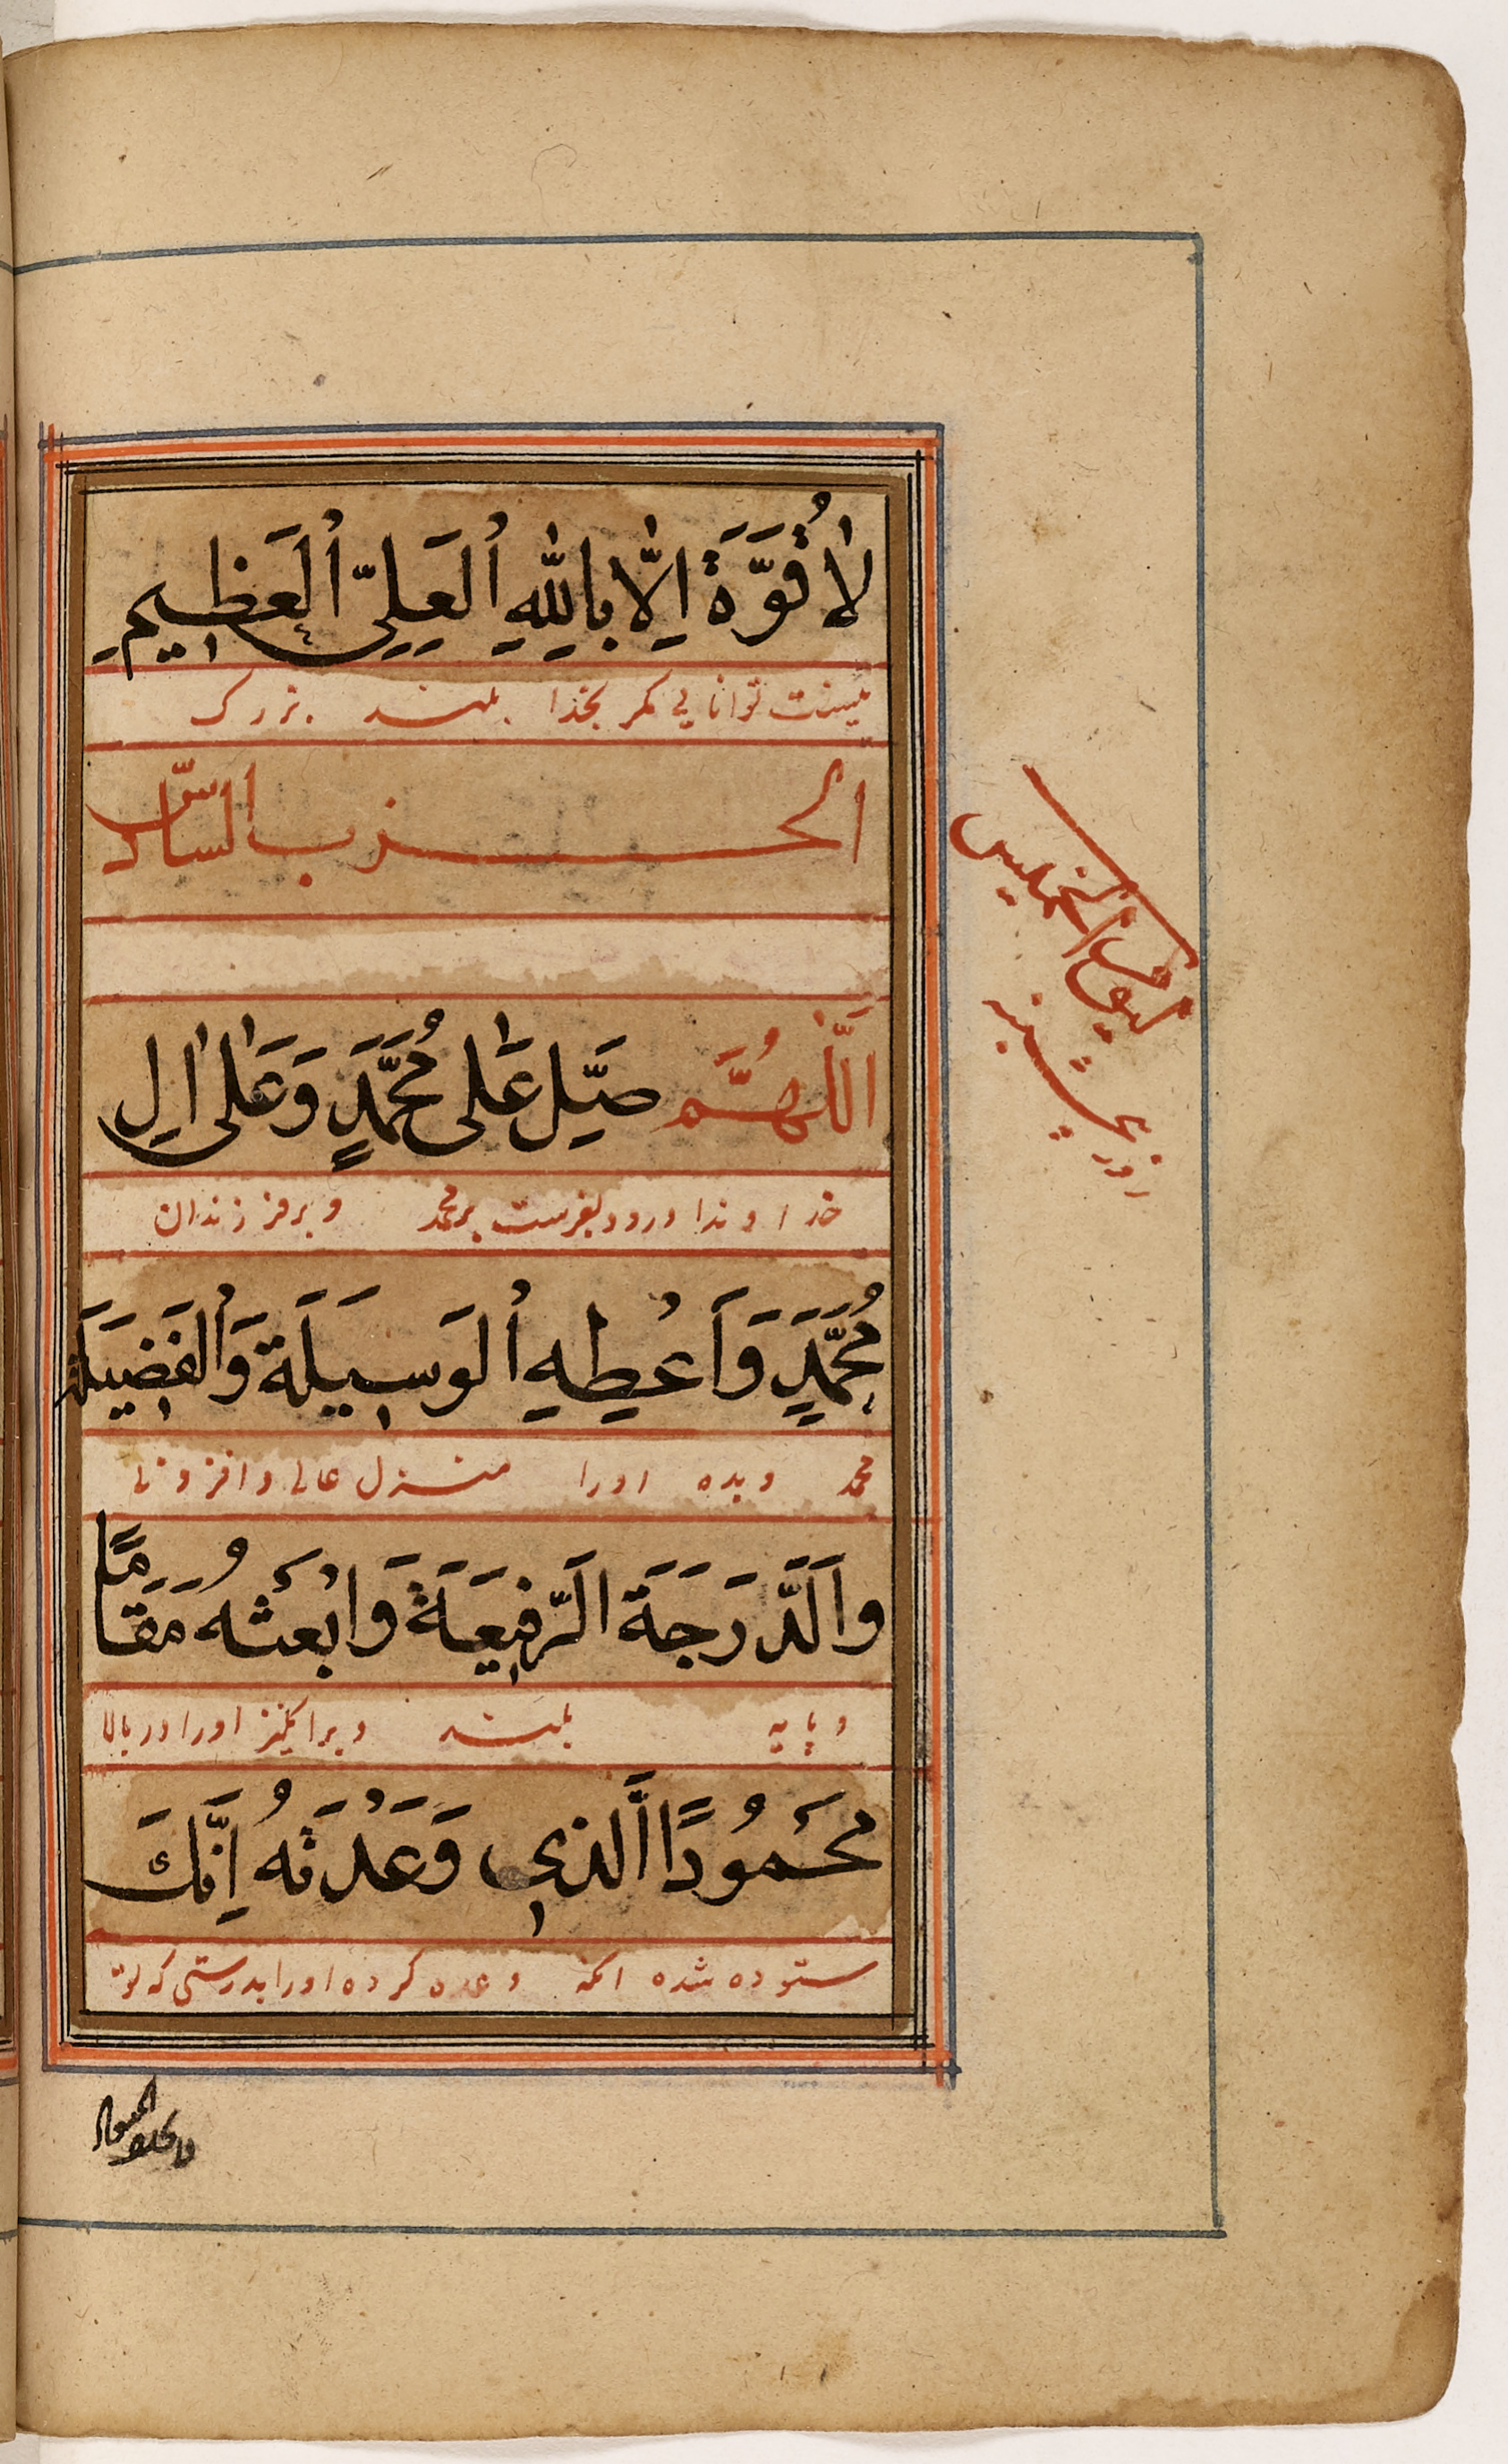 لَا قُوَّةَ اِلَّا بِاللّٰهِ ٱلْعَلِيِّ ٱلْعَظِيمِ
نیست توانایی مکر بخدا بلند بزرک
الحزب السادس
اَللّٰهُمَّ صَلِّ عَلٰى مُحَمَّدٍ وَعَلٰى اٰلِ
خداوندا درود بفرست بر محمد و بر فرزندان
مُحَمَّدٍ وَاَعْطِهِ ٱلْوَسِيلَةَ وَٱلْفَضِيلَةَ
محمد و بده اورا منزل عالی و افزونی
وَالدَّرَجَةَ الرَّفِيعَةَ وَابْعَثْهُ مَقَامًا
و پایه بلند و برانکیز اورا در بالا
مَحْمُودًا الَّذِي وَعَدْتَهُ اِنَّكَ
ستوده شده انکه وعده کرده اورا بدرستی که تو
ليوم الخميس
روز پنجشنبه